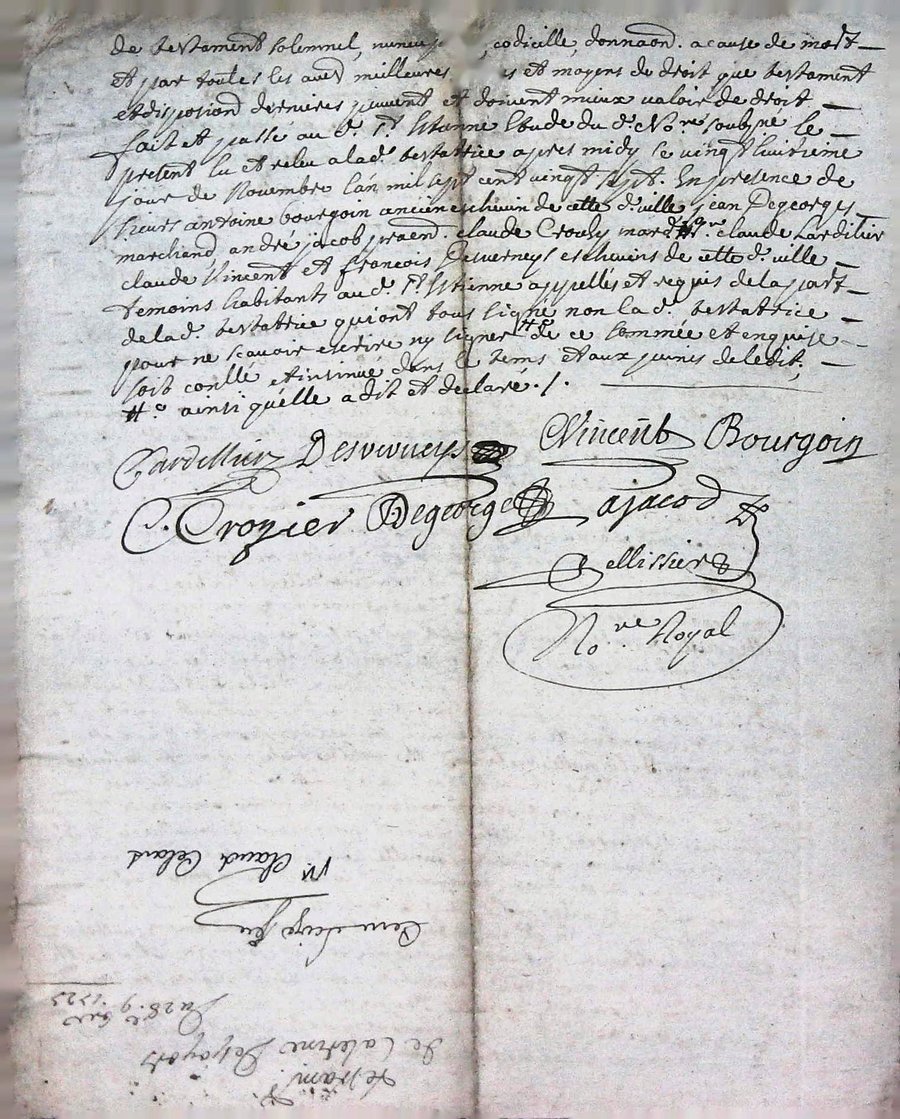 de testament solemnel, nuncu codicille, donnaond. a cause de mort
et par toutes les aues meilleures et moyens de droit que testament
et disposiond dernieres peuuent et doiuent mieux valoir de droit
fait et passé au d. St. Etienne Etude du d. Nore. soubgné le
present lu et releu a lad. testatrice apres midy le vingt huitieme
jour de Novembre l'an mil sept cent vingt sept. En presence de
sieurs antoine bourgoin ancien eschevin de cette d. ville jean Degeorges
marchand, andré jacod claude Crozier claude Lardillier
claude Vincent et francois Desverneys eschevins de cette d. ville
temoins habitants aud. St. Etienne appellés et requis de la part
de lad. testatrice qui ont tous signé non lad. testatrice
pour ne scauoir escrire ny signer de ce sommée et enquise
soit conllé et insinué dans le tems et aux peines de ledit,
ainsi qu'elle a dit et declaré ./.
Lardillier Desverneys CVincent Bourgoin
C. Crozier Degeorge ajacod
Pellissier
Nore. Royal
Testam.
de Caterine
Du 28. 9bre 1727
Claud